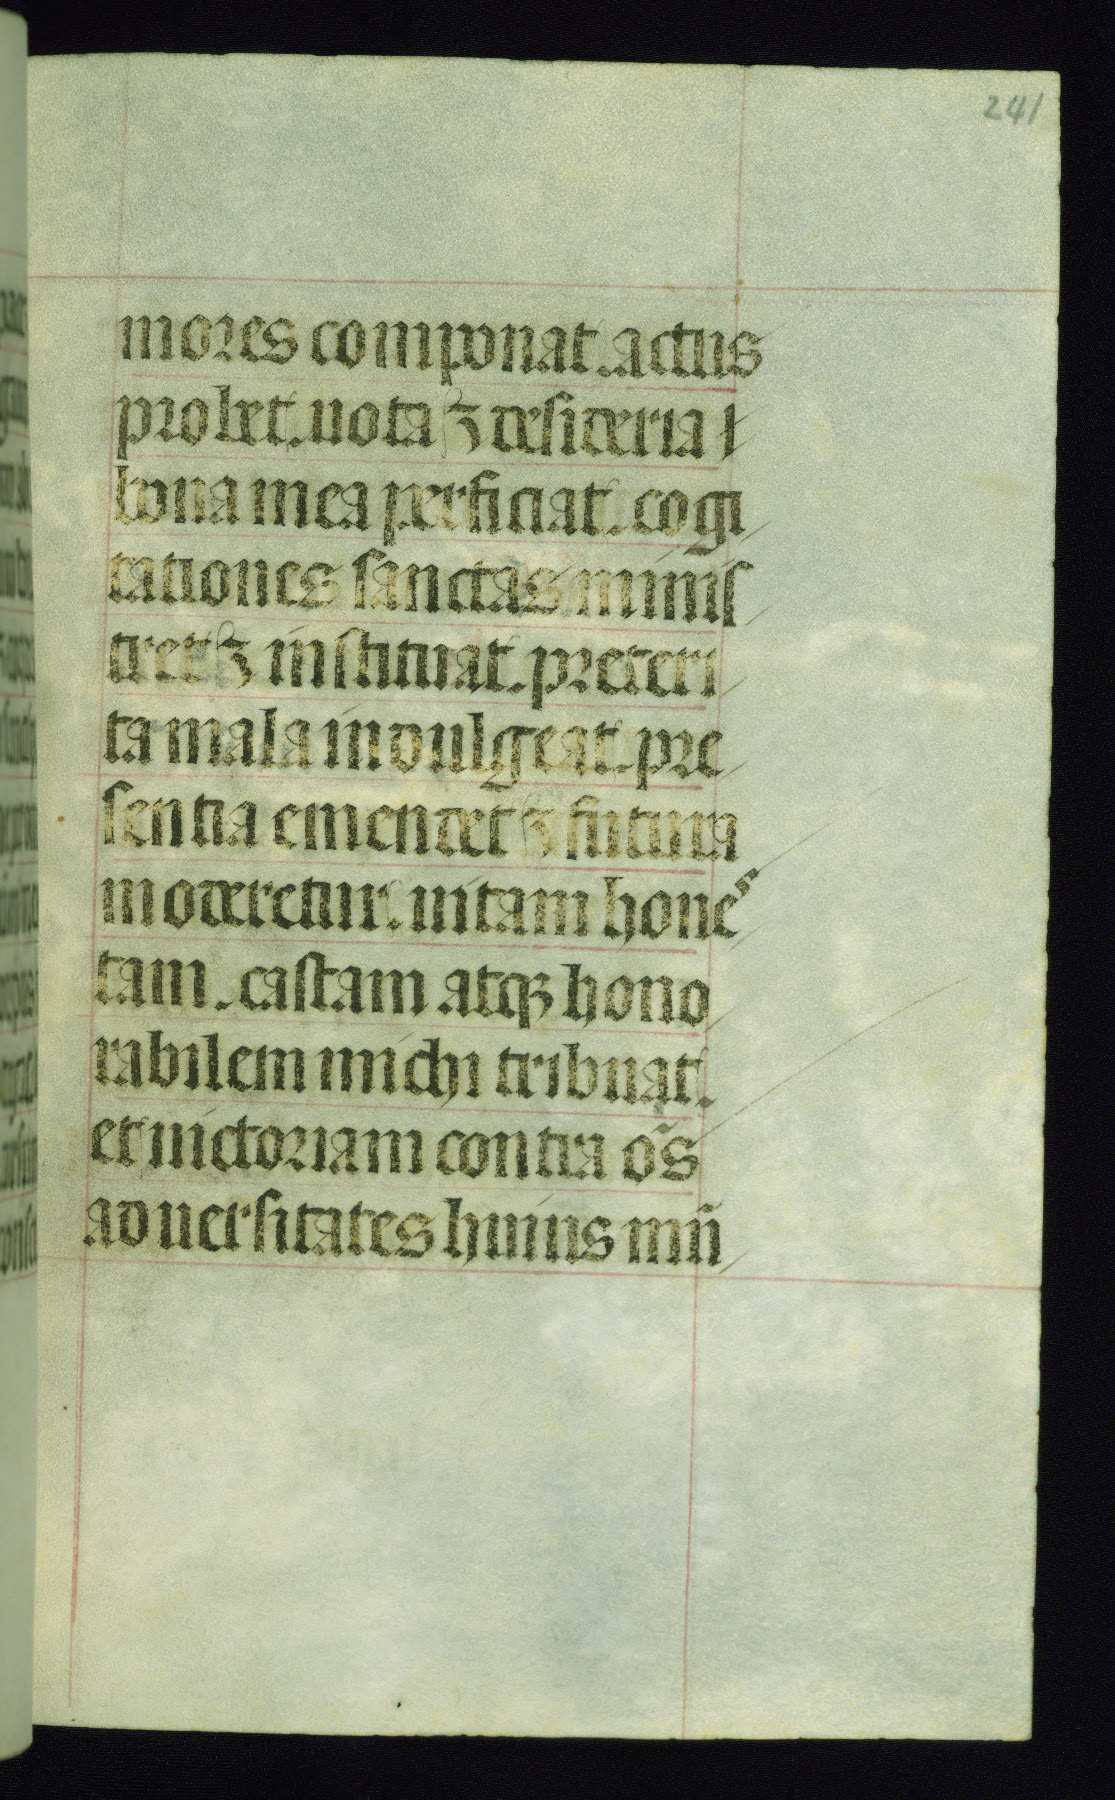 241
mores componat. actus
probet. uota ⁊ desideria
bona mea perficiat. cogi
tationes sanctas minis
tret ⁊ instituat. preteri
ta mala indulgeat. pre
sentia emendet ⁊ futura
moderetur. uitam hones
tam. castam atqꝫ hono
rabilem michi tribuat.
et uictoriam contra om̃s
aduersitates huius mũ